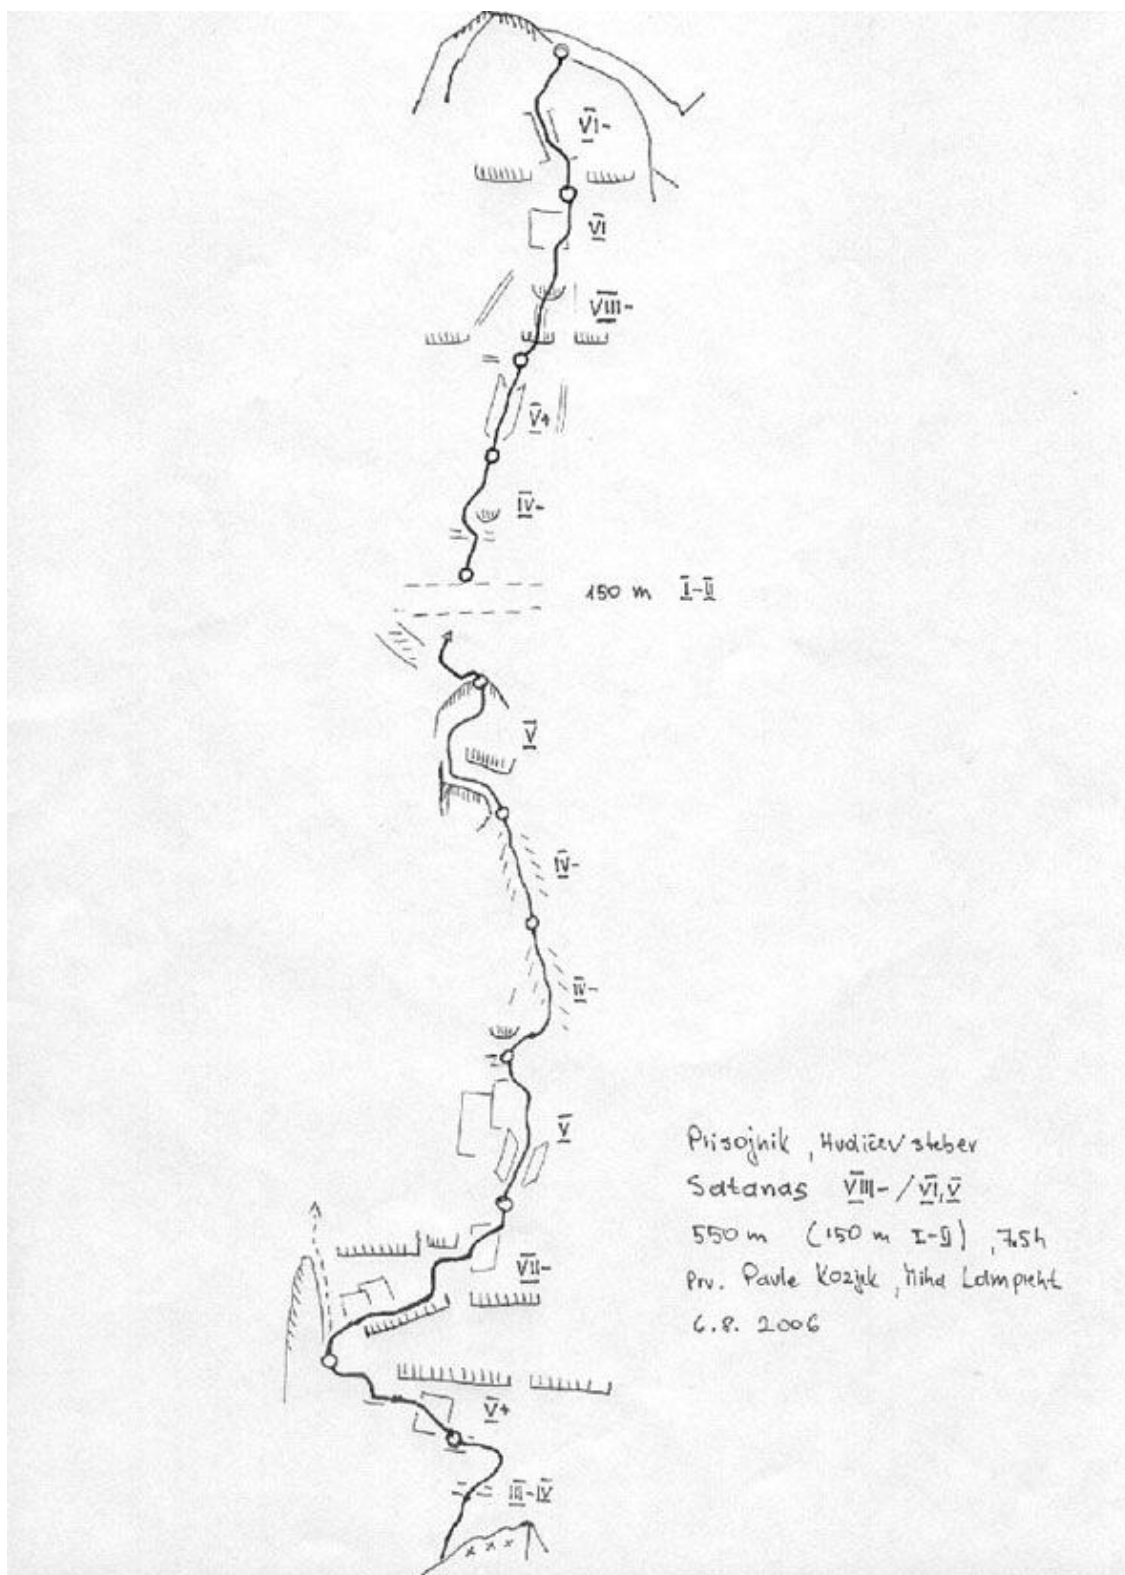 VI-
VI
VIII-
V+
IV-
150 m I-II
V
IV-
IV-
V
Prisojnik, Hudičev steber
Satanas VIII-/VI,V
550 m (150 m I-II), 7.5h
VII-
Prv. Pavle Kozjek, Miha Lampreht
6.8. 2006
V+
III-IV